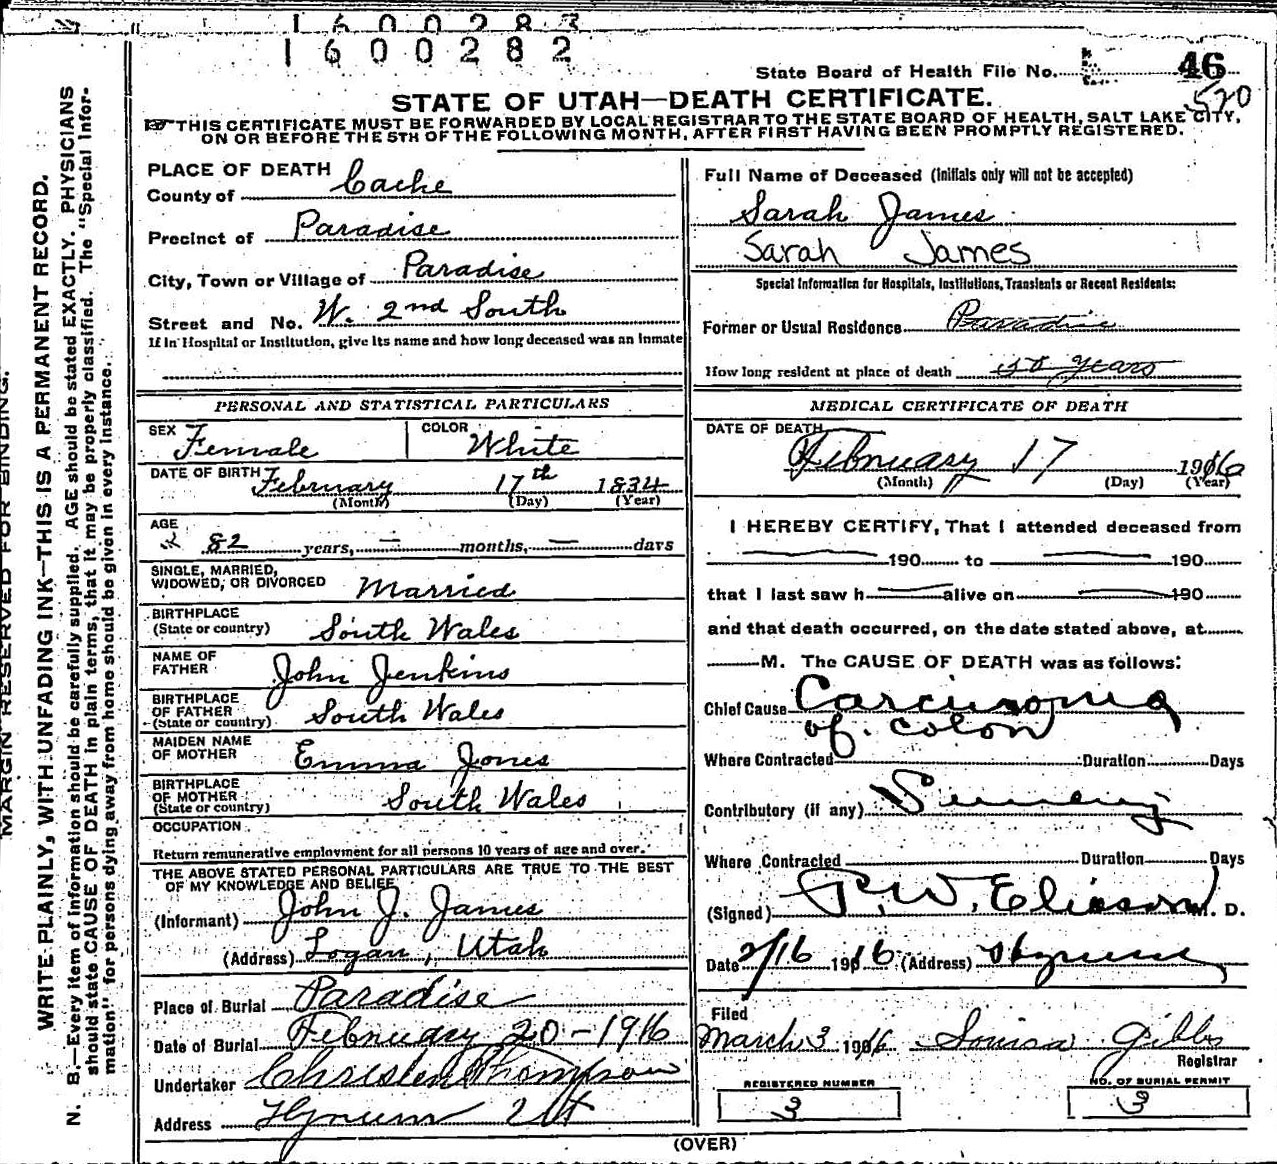 1600283
1600282
State Board of Health File No. 46
520
STATE OF UTAH—DEATH CERTIFICATE.
THIS CERTIFICATE MUST BE FORWARDED BY LOCAL REGISTRAR TO THE STATE BOARD OF HEALTH, SALT LAKE CITY,
ON OR BEFORE THE 5TH OF THE FOLLOWING MONTH, AFTER FIRST HAVING BEEN PROMPTLY REGISTERED.
MARGIN RESERVED FOR BINDING.
WRITE PLAINLY, WITH UNFADING INK—THIS IS A PERMANENT RECORD.
N. B.—Every item of information should be carefully supplied. AGE should be stated EXACTLY. PHYSICIANS
should state CAUSE OF DEATH in plain terms, that it may be properly classified. The "Special Infor-
mation" for persons dying away from home should be given in every instance.
PLACE OF DEATH
County of Cache
Precinct of Paradise
City, Town or Village of Paradise
Street and No. W. 2nd South
If in Hospital or Institution, give its name and how long deceased was an inmate
PERSONAL AND STATISTICAL PARTICULARS
SEX Female COLOR White
DATE OF BIRTH February 17th 1834
(Month) (Day) (Year)
AGE
82 years, — months, — days
SINGLE, MARRIED,
WIDOWED, OR DIVORCED Married
BIRTHPLACE
(State or country) South Wales
NAME OF
FATHER John Jenkins
BIRTHPLACE
OF FATHER
(State or country) South Wales
MAIDEN NAME
OF MOTHER Emma Jones
BIRTHPLACE
OF MOTHER
(State or country) South Wales
OCCUPATION
Return remunerative employment for all persons 10 years of age and over.
THE ABOVE STATED PERSONAL PARTICULARS ARE TRUE TO THE BEST
OF MY KNOWLEDGE AND BELIEF
(Informant) John J. James
(Address) Logan, Utah
Place of Burial Paradise
Date of Burial February 20-1916
Undertaker Christen Thompson
Address Hyrum Ut
Full Name of Deceased (Initials only will not be accepted)
Sarah James
Sarah James
Special Information for Hospitals, Institutions, Transients or Recent Residents:
Former or Usual Residence Paradise
How long resident at place of death years
MEDICAL CERTIFICATE OF DEATH
DATE OF DEATH
February 17 1916
(Month) (Day) (Year)
I HEREBY CERTIFY, That I attended deceased from
190 to 190
that I last saw h alive on 190
and that death occurred, on the date stated above, at
M. The CAUSE OF DEATH was as follows:
Chief Cause Carcinoma
of colon
Where Contracted Duration Days
Contributory (if any)
Where Contracted Duration Days
(Signed) P. W. Eliason M. D.
Date 2/16 1916 (Address) Hyrum
Filed
March 3 1916 Louisa Gibbs
Registrar
REGISTERED NUMBER
3
NO. OF BURIAL PERMIT
3
(OVER)